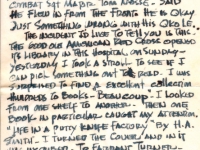 COMBAT SGT MAJOR. TOM NOBLE. SAID
HE FLEW IN FROM THE FLOAT. HE IS OKAY
JUST SOMETHING WRONG WITH HIS
THE INCIDENT I'D LIKE TO TELL YOU IS THIS.
THE GOOD OLD AMERICAN RED CROSS OPENED
ITS LIBRARY IN THIS HOSPITAL, ON SUNDAY
YESTERDAY I TOOK A STROLL TO SEE IF I
CAN PICK SOMETHING OUT TO READ. I WAS
SURPRISED TO FIND A EXCELLENT COLLECTION
HUNDREDS OF BOOKS - BEAUCOUP. I LOOKED
FROM ONE SHELF TO ANOTHER. THEN ONE
BOOK IN PARTICULAR CAUGHT MY ATTENTION,
"LIFE IN A PUTTY KNIFE FACTORY" BY H.A.
SMITH. I TURNED THE COVER AND IN IT
WAS INSCRIBED, TO FARRANT TURNER.